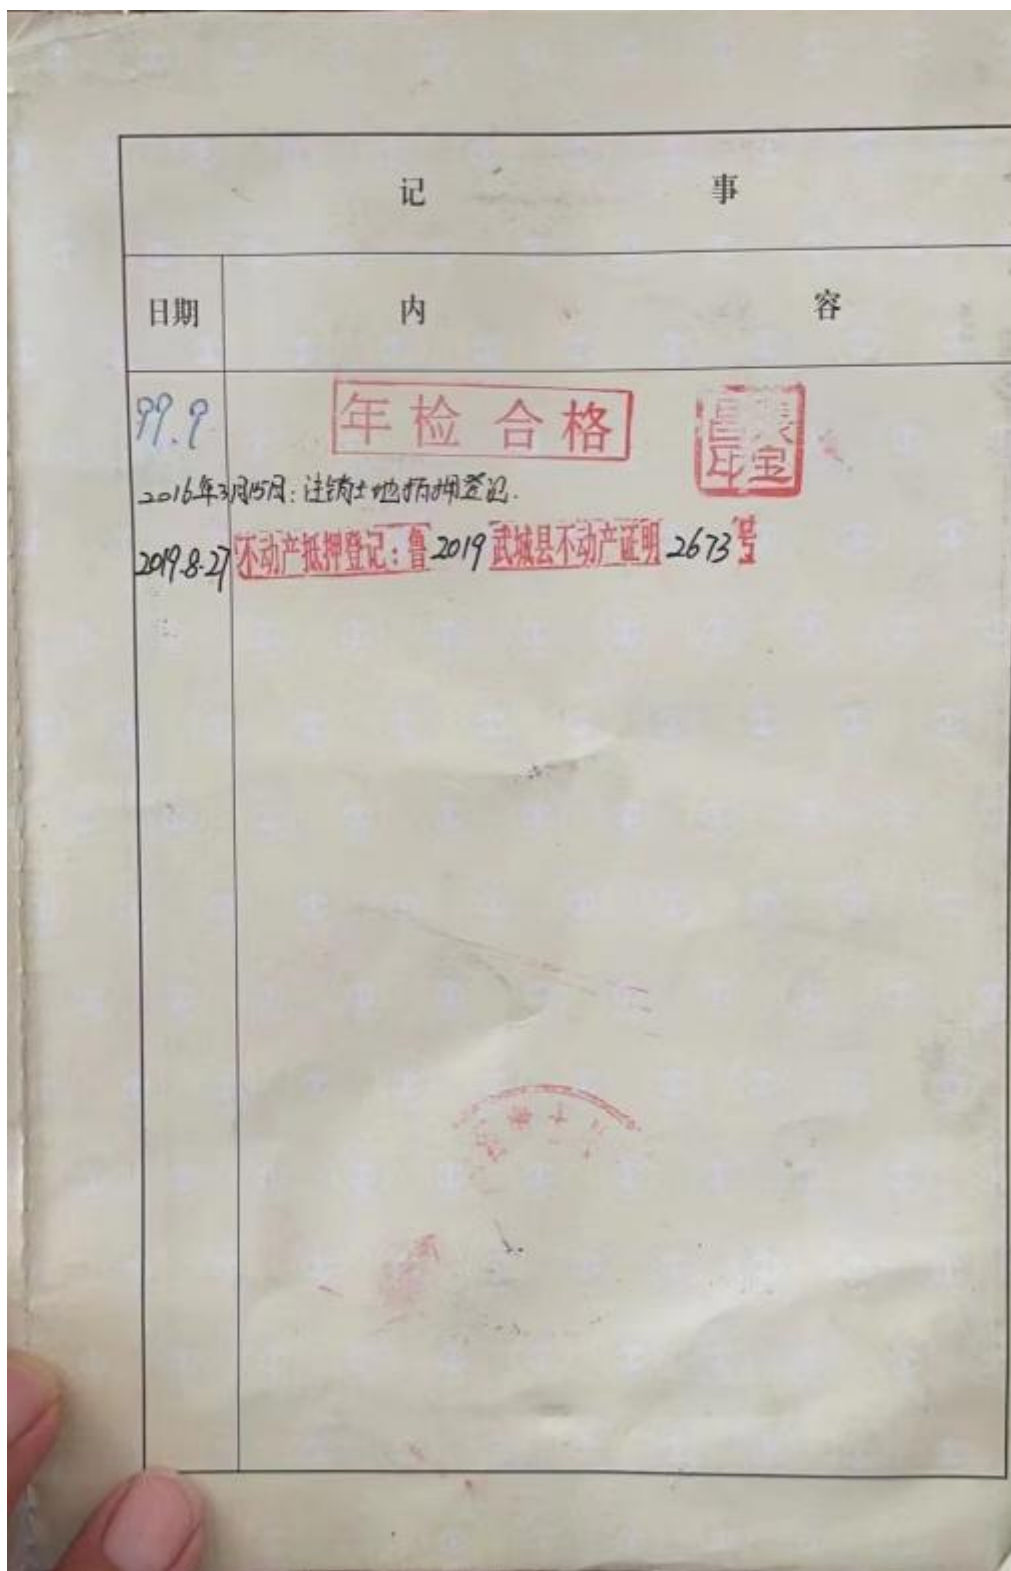 记 事
日期 内 容
99.9 年检合格
2016年3月15日：注销土地抵押登记.
2019.8.27 不动产抵押登记：鲁 2019 武城县不动产证明 2673 号